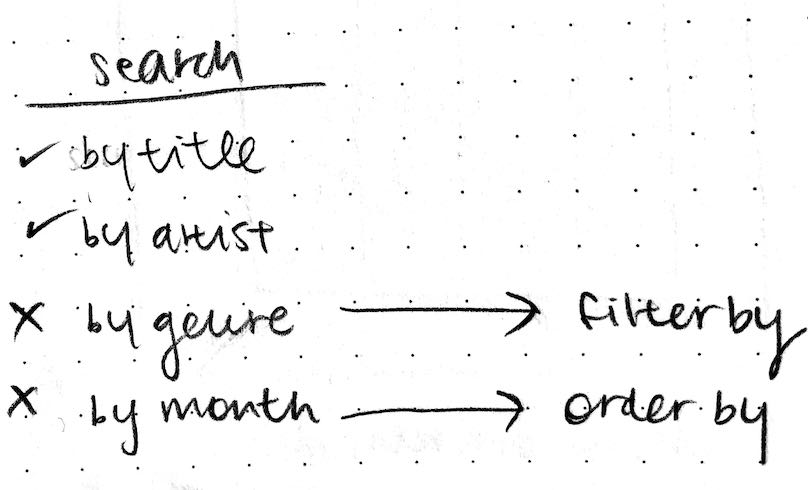 search
✓ by title
✓ by artist
✗ by genre → filter by
✗ by month → order by